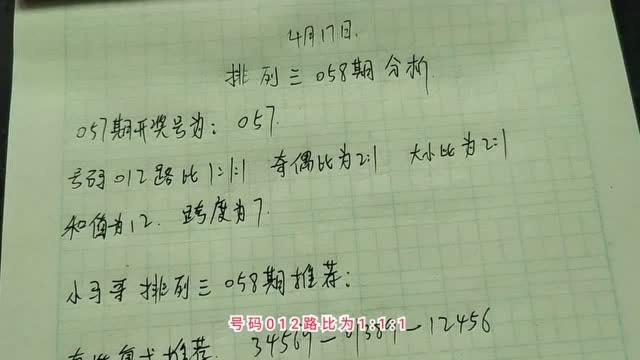 4月17日.
排列三058期分析.
057期开奖号为: 057.
号码012路比1:1:1 奇偶比为2:1 大小比为2:1
和值为12. 跨度为7.
小马哥排列三058期推荐:
号码012路比为1:1:1
推荐. 34569—01389—12456